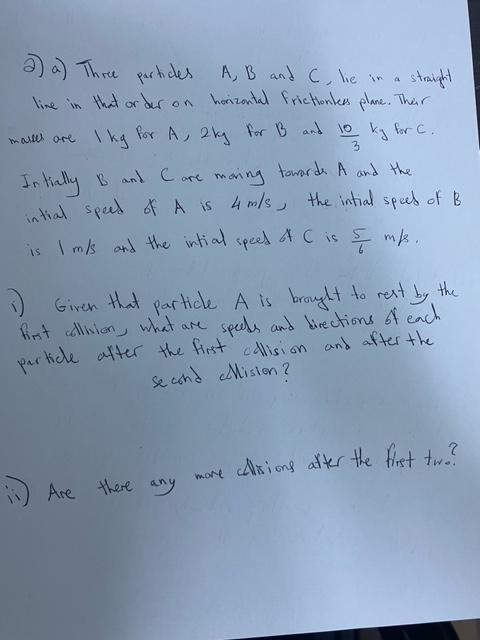 2) a) Three particles A, B and C, lie in a straight
line in that order on horizontal frictionless plane. Their
masses are 1 kg for A, 2kg for B and 10/3 kg for C.
Initially B and C are moving towards A and the
intial speed of A is 4 m/s, the intial speed of B
is 1 m/s and the intial speed of C is 5/6 m/s.
i) Given that particle A is brought to rest by the
first collision, what are speeds and directions of each
particle after the first collision and after the
second collision?
ii) Are there any more collisions after the first two?